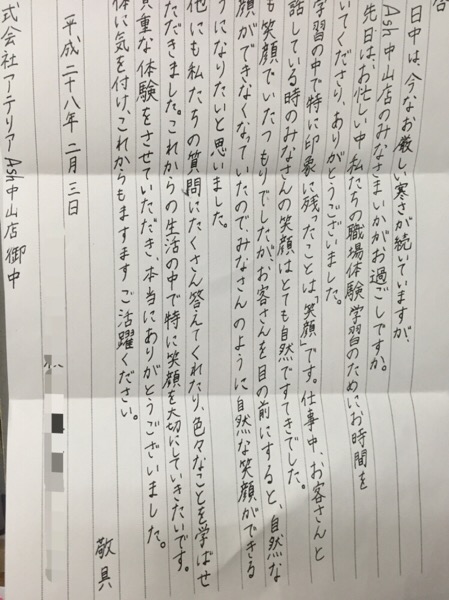 日中は、今なお厳しい寒さが続いていますが、
Ash中山店のみなさまいかがお過ごしですか。
先日は、お忙しい中私たちの職場体験学習のためにお時間を
いてくださり、ありがとうございました。
学習の中で特に印象に残ったことは「笑顔」です。仕事中、お客さんと
話している時のみなさんの笑顔はとても自然ですてきでした。
も笑顔でいたつもりでしたが、お客さんを目の前にすると、自然な
顔ができなくなっていたのでみなさんのように自然な笑顔ができる
うになりたいと思いました。
他にも私たちの質問にたくさん答えてくれたり、色々なことを学ばせ
ただきました。これからの生活の中で特に笑顔を大切にしていきたいです。
重な体験をさせていただき、本当にありがとうございました。
体に気を付け、これからもますますご活躍ください。
敬具
平成二十八年二月三日
式会社アテリア Ash中山店御中